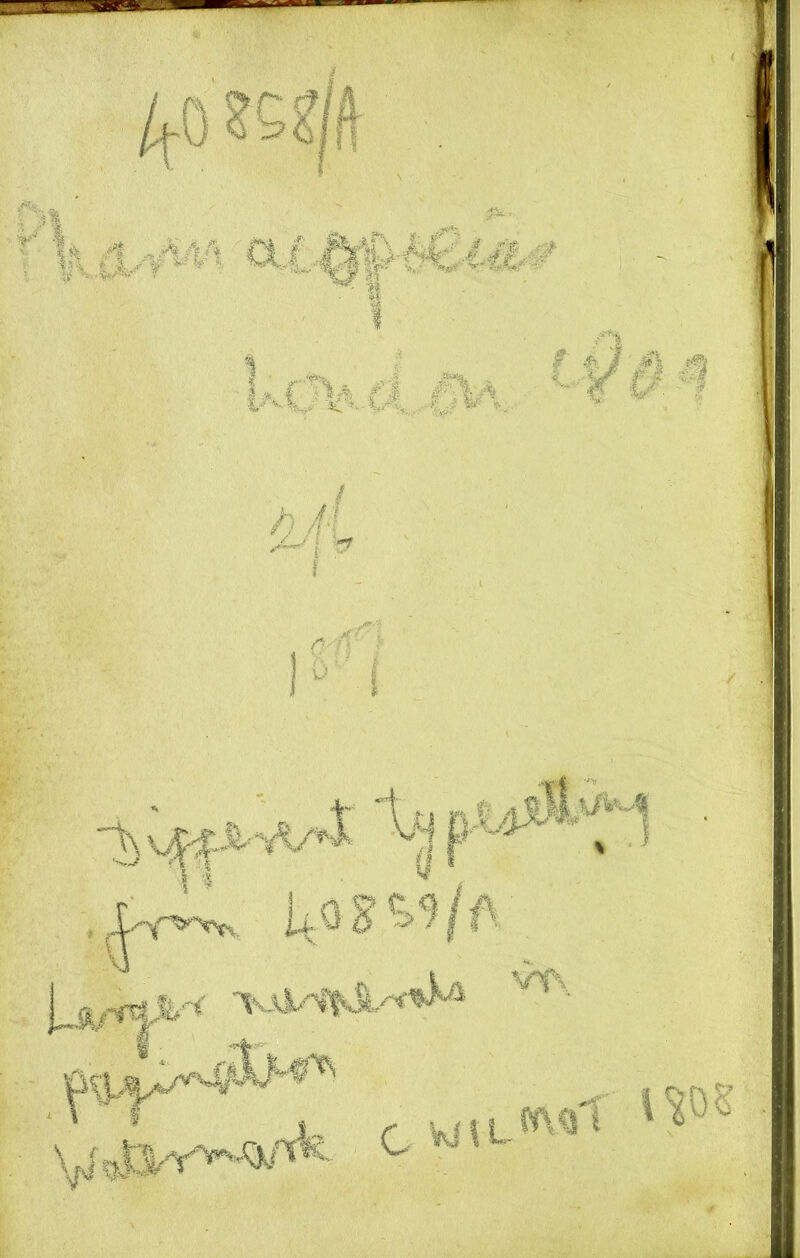 40858/A
Pharmacopoeia
London 1809
2/6
1809
Different typesetting
from 40859/A
Larger numerals in
pagination
Watermark C WILMOT 1808